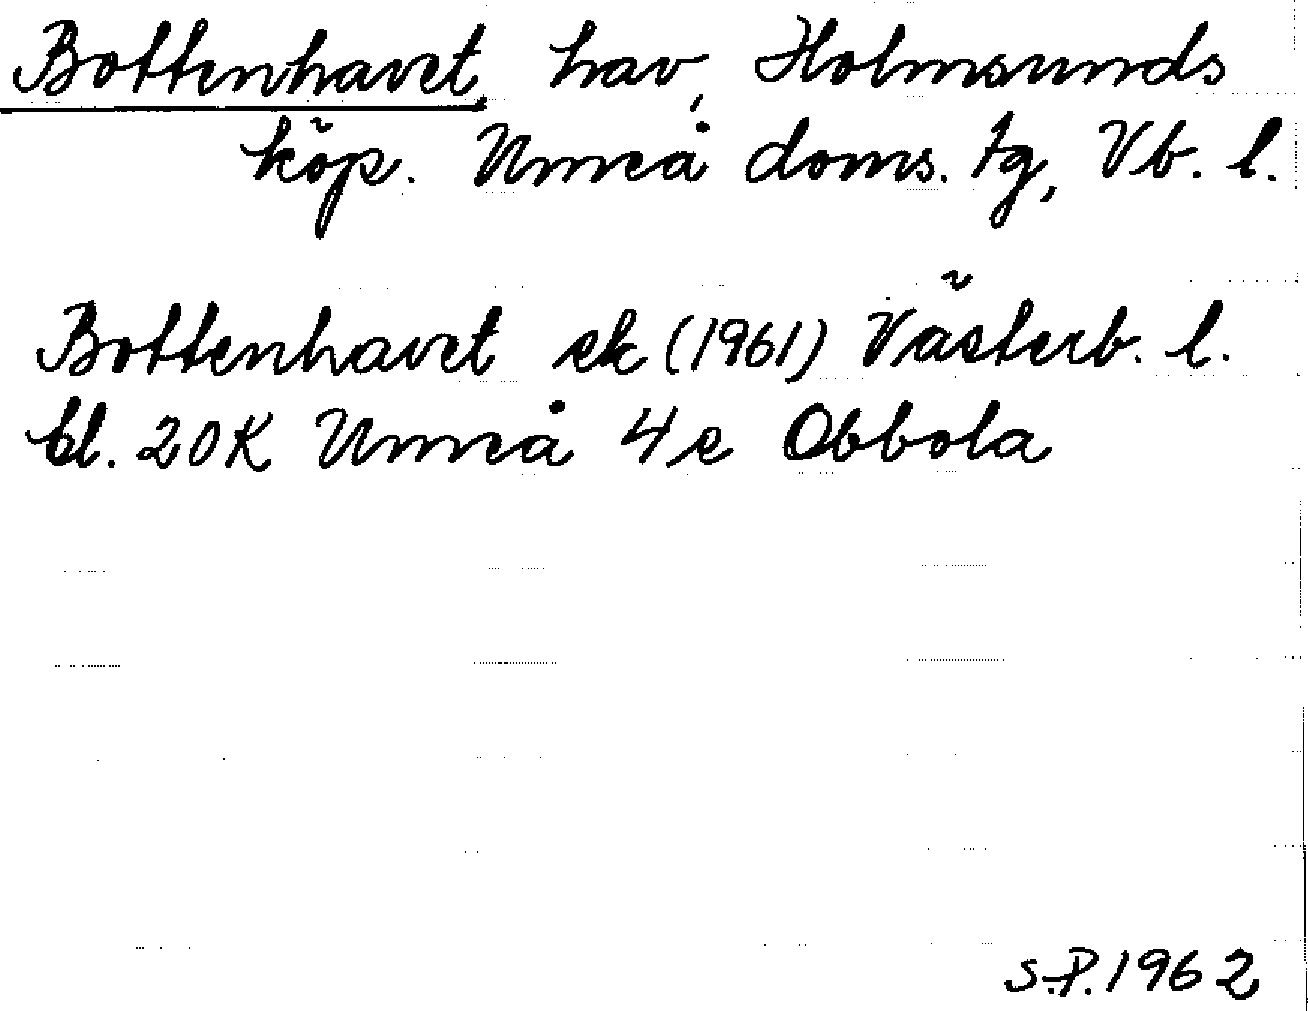 Bottenhavet, hav, Holmsunds
köp. Umeå doms. tg, Vb. l.
Bottenhavet ek (1961) Västerb. l.
bl. 20K Umeå 4e Obbola
S.P. 1962